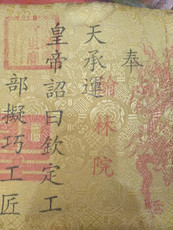 奉
天承運
皇帝詔曰欽定工
部擬巧工匠
翰林院